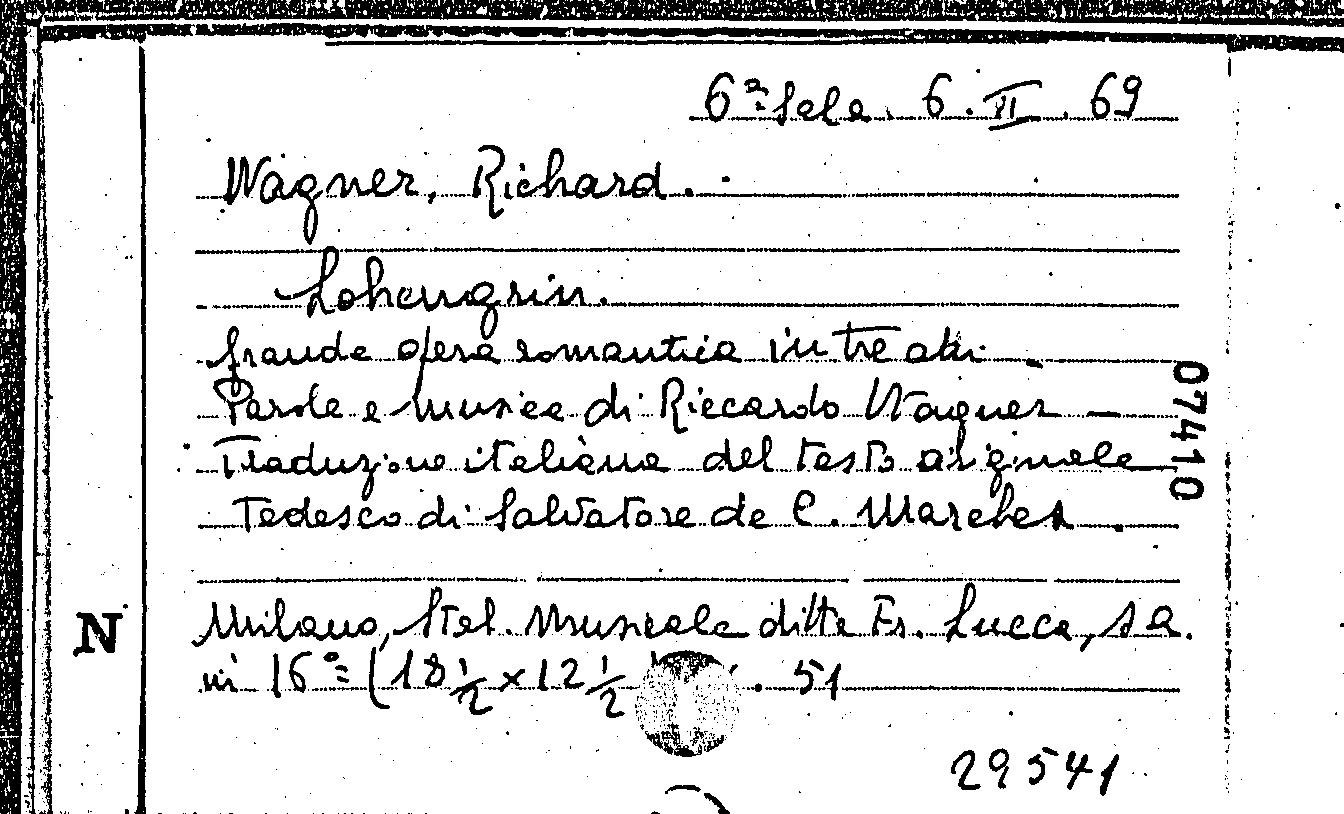 6ª Sala. 6. VI. 69
Wagner, Richard.
Lohengrin.
grande opera romantica in tre atti -
Parole e musica di Riccardo Wagner -
07410
Traduzione italiana del testo originale
Tedesco di Salvatore de C. Marchesi.
N
Milano, Stab. Musicale ditta Fr. Lucca, s a.
in 16º = (18 1/2 x 12 1/2 . 51
29541